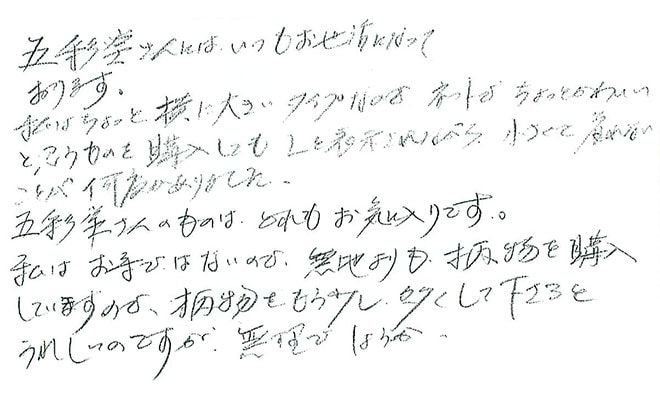 五彩堂さんには、いつもお世話になって
おります。
私はちょっと横に大きいタイプなので ネットで ちょっとかわいい
と思うものを購入しても Lと表示されながら、小さくて着れない
ことが何度かありました。
五彩堂さんのものは、どれもお気に入りです。
私はお手ではないので、無地よりも、柄物を購入
していますので、柄物をもう少し、多くして下さると
うれしいのですが、無理でしょうか。